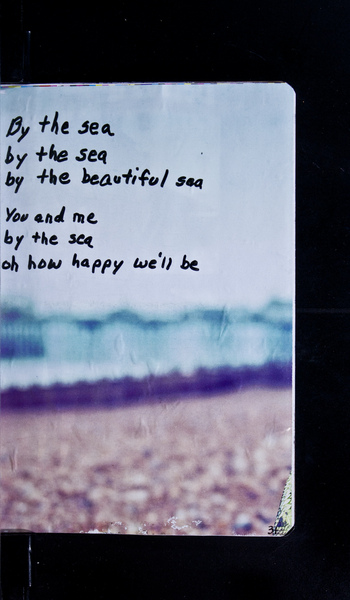 By the sea
by the sea
by the beautiful sea
You and me
by the sea
oh how happy we'll be